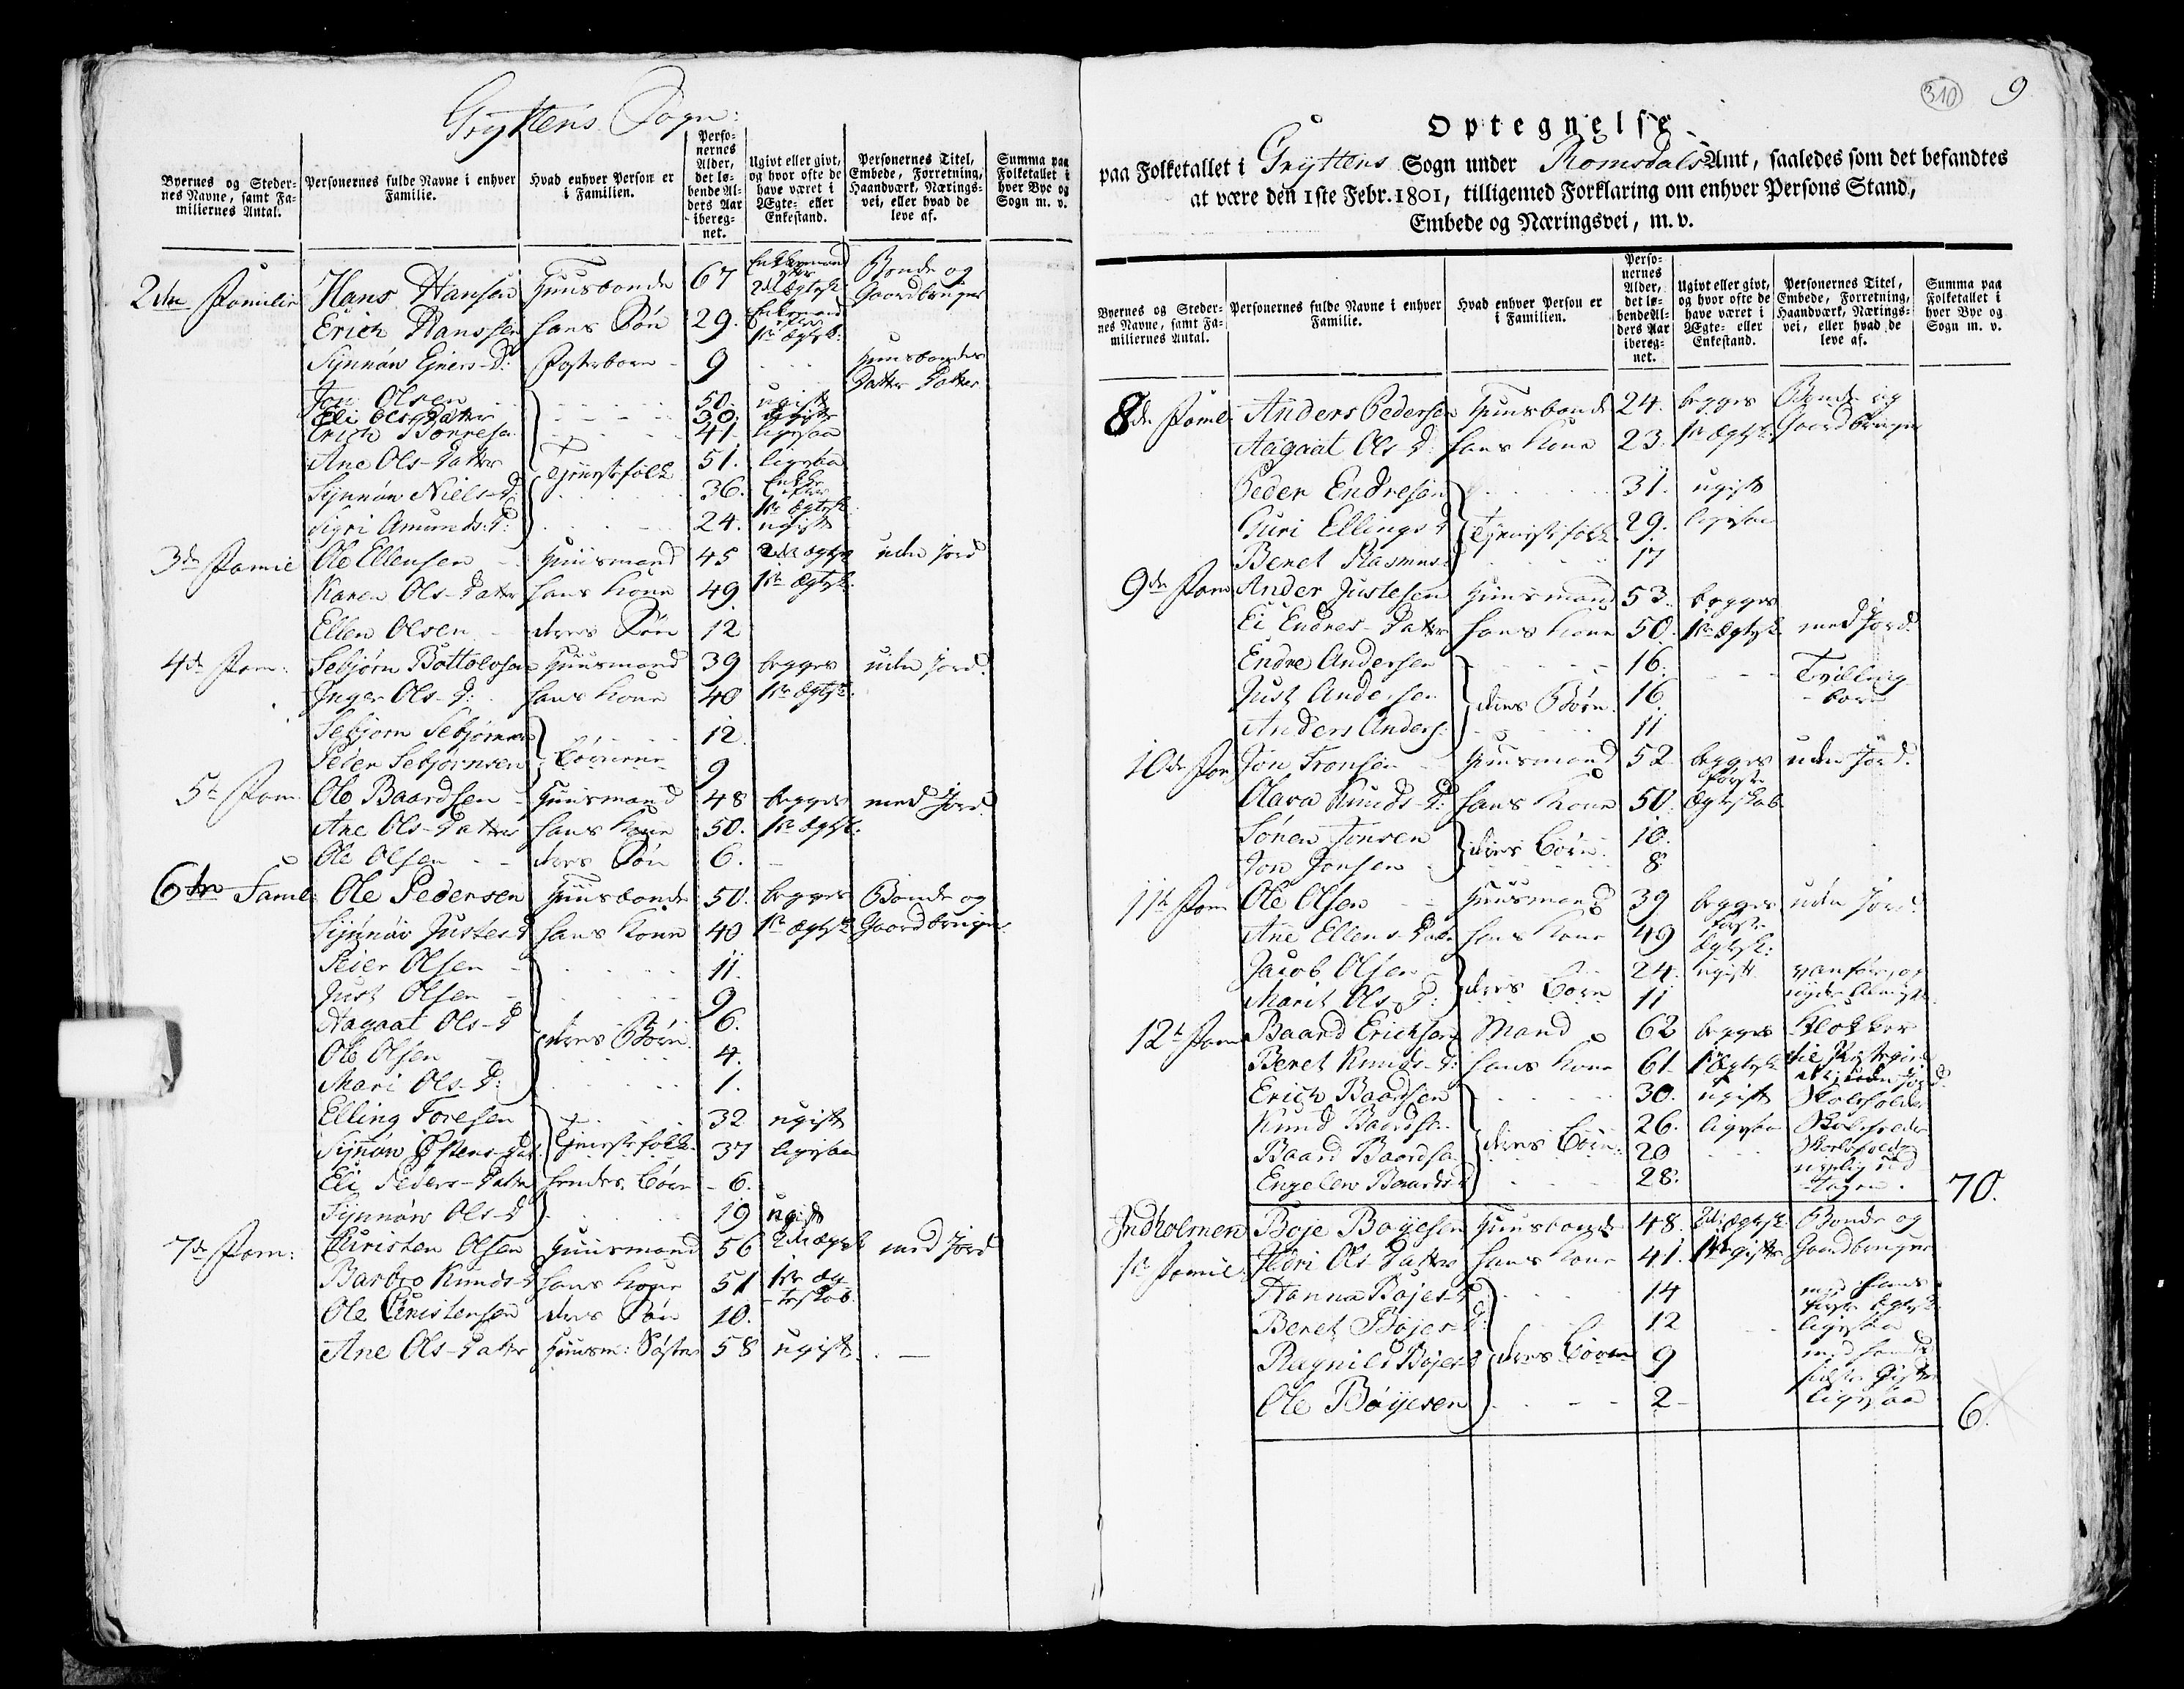 Gryttens Sogn:
Byernes og Steder-
nes Navne, samt Fa-
miliernes Antal.
Personernes fulde Navne i enhver
Familie.
Hvad enhver Person er
i Familien.
Perso-
nernes
Alder,
det lø-
bende Al-
ders Aar
ibereg-
net.
Ugivt eller givt,
og hvor ofte de
have været i
Ægte- eller
Enkestand.
Personernes Titel,
Embede, Forretning,
Haandværk, Nærings-
vei, eller hvad de
leve af.
Summa paa
Folketallet i
hver Bye og
Sogn m. v.
2den Familie Hans Hansen Huusbonde 67 Enkemand efter 2det Ægtsk: Bonde og Gaardbruger
Erich Hanssen hans Søn 29. Enkemand efter 1ste Ægtsk:
Synnøw Ejners-D: Fosterbarn - 9 Huusbondes Datter Datter
Jon Olsen 50. ugift
Eli Ols Datter 30. ugift
Erich Borresen 41. ligesaa
Ane Ols-Datter Tjenestefolk 51. ligesaa
Synnøw Niels-D: 36. Enke efter 1ste Ægtesk:
Sigri Amunds:D: 24. ugift
3die Familie Ole Ellensen - Huusmand 45 2det Ægtsk uden Jord
Karen Ols-Datter hans Kone 49 1ste Ægtsk:
Ellen Olsen - deres Søn 12
4de Fam: Sebjørn Bottolvsen Huusmand 39 begges uden Jord.
Inger Ols-D: hans Kone 40 1ste Ægtsk:
Sebjørn Sebjørnsen 12.
Peder Sebjørnsen Børnene 9
5te Fam. Ole Baardsen - Huusmand 48 begges med Jord.
Ane Ols-Datter hans Kone 50. 1ste Ægtsk:
Ole Olsen - - deres Søn 6. -
6te Famil: Ole Pedersen Huusbonde 50. begges Bonde og
Synnøv Justes-D hans Kone 40 1ste Ægtsk Gaardbruger
Peder Olsen - 11.
Just Olsen - 9
Aagaat Ols-D 6.
Ole Olsen deres Børn 4.
Mari Ols-D: 1.
Elling Toresen 32 ugift
Synøw Østens-Dat. Tjenestefolk 37 ligesaa
Eli Peders-Datter hendes Børn - 6.
Synnøw Ols-D 19 ugift
7de Fam: Christen Olsen Huusmand 56 2det Ægtsk med Jord
Barbro Knuds-D hans Kone 51 1ste Æg-
teskab.
Ole Christensen deres Søn 10.
Ane Ols-Datter Huusm: Søster 58 ugift. -
310 9
Optegnelse
paa Folketallet i Gryttens Sogn under Romsdals Amt, saaledes som det befandtes
at være den 1ste Febr. 1801, tilligemed Forklaring om enhver Persons Stand,
Embede og Næringsvei, m. v.
Byernes og Steder-
nes Navne, samt Fa-
miliernes Antal.
Personernes fulde Navne i enhver
Familie.
Hvad enhver Person er
i Familien.
Perso-
nernes
Alder,
det lø-
bende Al-
ders Aar
ibereg-
net.
Ugivt eller givt,
og hvor ofte de
have været i
Ægte- eller
Enkestand.
Personernes Titel,
Embede, Forretning,
Haandværk, Nærings-
vei, eller hvad de
leve af.
Summa paa
Folketallet i
hver Bye og
Sogn m. v.
8de Famil: Anders Pedersen Huusbonde 24. begges Bonde og
Aagaat Ols-D: hans Kone 23. 1ste Ægtsk. Gaardbruger
Peder Endresen 31. ugift
Guri Ellings-D Tjenestefolk 29. ligesaa
Beret Rasmus-D 17
9de Fam Ander Justesen Huusmand 53. begges
Ei Endres-Datter hans Kone 50. 1ste Ægtsk. med Jord.
Endre Andersen 16. - - Tvilling-
Just Andersen deres Børn. 16. - børn
Anders Anders: 11
10de Fam Jon Tronsen Huusmand 52 begges uden Jord.
Olava Knuds-D: hans Kone 50. første Ægteskab
Sønen Jonsen 10.
Jon Jonsen deres Børn. 8
11te Fam Ole Olsen - - Huusmand 39 begges uden Jord.
Ane Ellens-Dat. hans Kone 49 første Ægtsk:
Jacob Olsen 24. ugift vanfør, og
Marit Ols-D: deres Børn 11 nyder
12te Fam Baard Erichsen Mand 62 begges Klokker
Beret Knuds-D: hans Kone 61. 1ste Ægtsk til uden Jord.
Erich Baardsen 30. ugift Skoleholder
Knud Baardsen 26. ligesaa Skoleholder
Baard Baardsen deres Børn. 20 - - - Skoleholder
Engelev Baards-D 28. 70.
Indholmen Boje Bojesen Huusbonde 48. 2det Ægtsk. Bonde og
1ste Famil: Ols Datter hans Kone 41. 1ste Gifte Gaardbruger
Hanna Bojes-D 14 med hans første Ægtsk:
Beret Bøjes-D: 12 ligesaa
Ragnild Bojes-D deres Børn 9 med hans sidste Gifte
Ole Bøjesen - - - 2 - ligesaa 6.